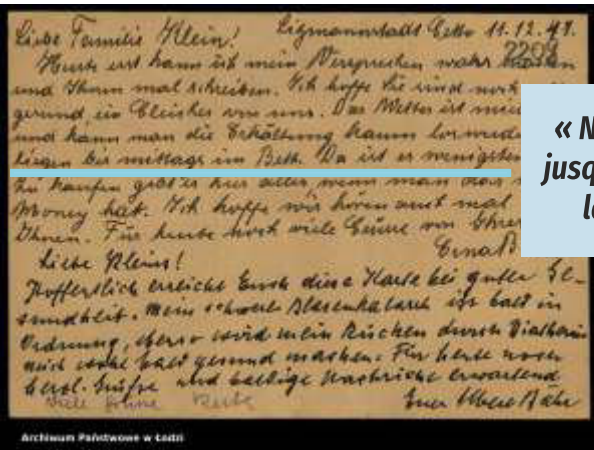 Liebe Familie Klein! Litzmannstadt Getto 11.12.41.
2209
Heute erst kann ich mein Versprechen wahr machen
und Ihnen mal schreiben. Ich hoffe Sie sind noch
gesund, ein Gleiches von uns. Das Wetter ist
und kann man die Erkältung kaum loswerden
liegen bis mittags im Bett. Da ist es wenigstens
zu kaufen gibt es hier alles, wenn man das
Money hat. Ich hoffe wir hören auch mal von
Ihnen. Für heute noch viele Grüsse von Ihrer
Erna B
Liebe Kleins!
Hoffentlich erreicht Euch diese Karte bei guter Ge-
sundheit. Mein schwerer Blasenkatarrh ist bald in
Ordnung, ebenso wird mein Rücken durch Diathermie
auch wohl bald gesund machen. Für heute noch
herzl. Grüße und baldige Nachricht erwartend
Viele Grüsse
Euer Bähr
« N
jusq
l
Archiwum Państwowe w Łodzi